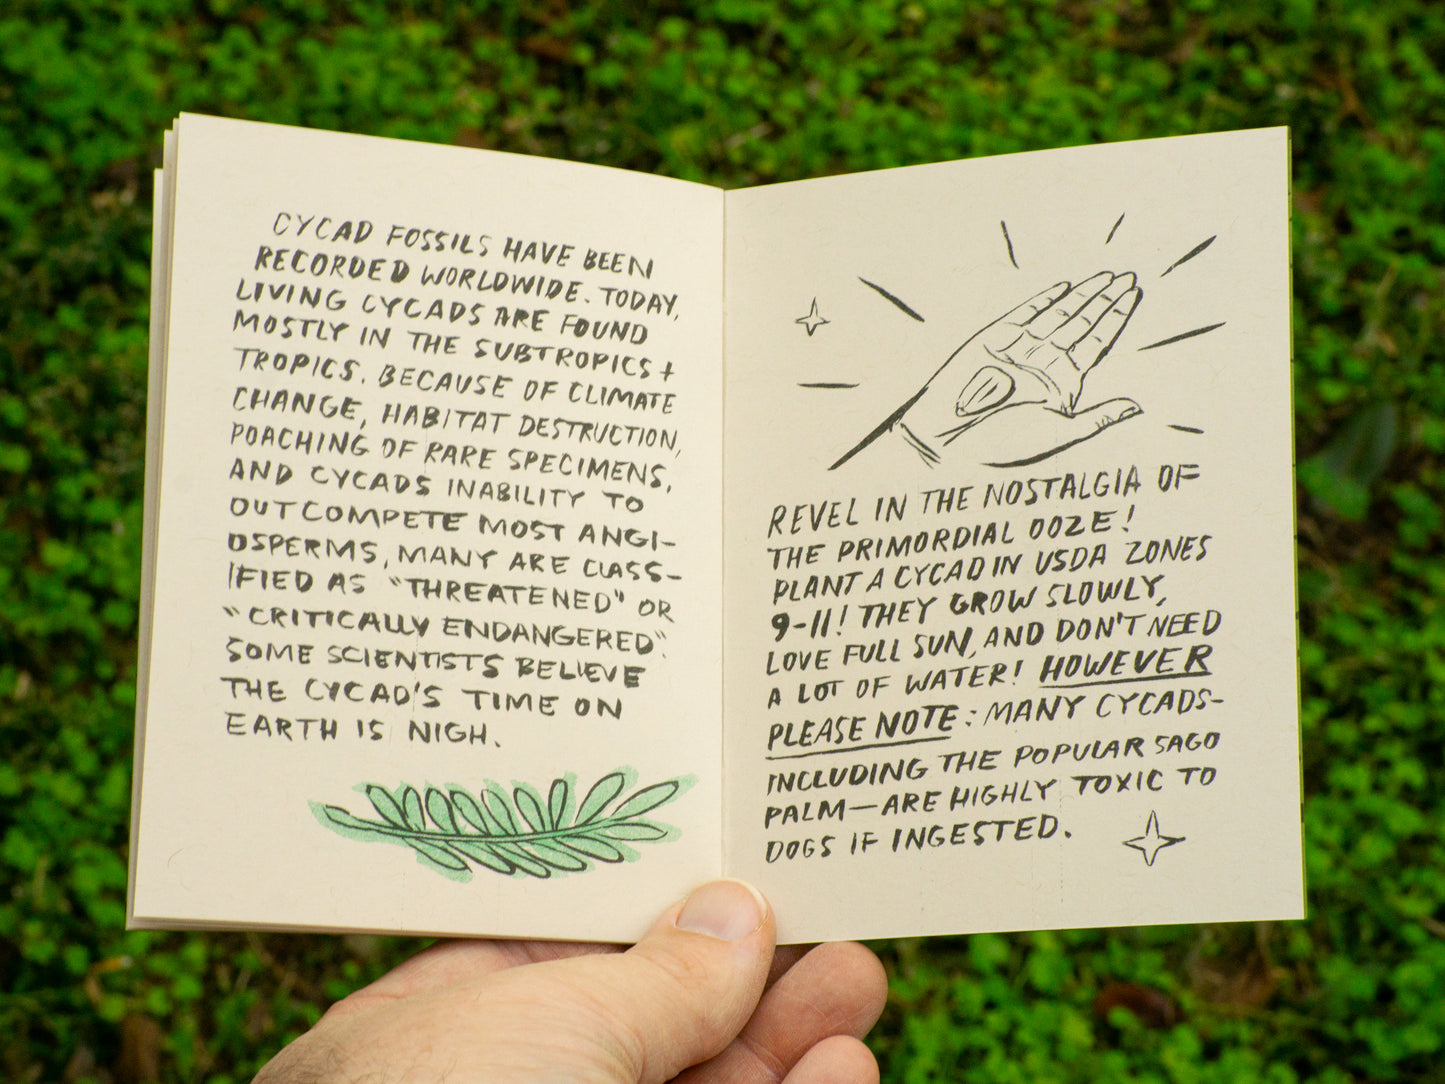 CYCAD FOSSILS HAVE BEEN
RECORDED WORLDWIDE. TODAY,
LIVING CYCADS ARE FOUND
MOSTLY IN THE SUBTROPICS +
TROPICS. BECAUSE OF CLIMATE
CHANGE, HABITAT DESTRUCTION,
POACHING OF RARE SPECIMENS,
AND CYCADS INABILITY TO
OUTCOMPETE MOST ANGI-
OSPERMS, MANY ARE CLASS-
IFIED AS "THREATENED" OR
"CRITICALLY ENDANGERED".
SOME SCIENTISTS BELIEVE
THE CYCAD'S TIME ON
EARTH IS NIGH.
REVEL IN THE NOSTALGIA OF
THE PRIMORDIAL OOZE!
PLANT A CYCAD IN USDA ZONES
9-11! THEY GROW SLOWLY,
LOVE FULL SUN, AND DON'T NEED
A LOT OF WATER! HOWEVER
PLEASE NOTE: MANY CYCADS-
INCLUDING THE POPULAR SAGO
PALM—ARE HIGHLY TOXIC TO
DOGS IF INGESTED.